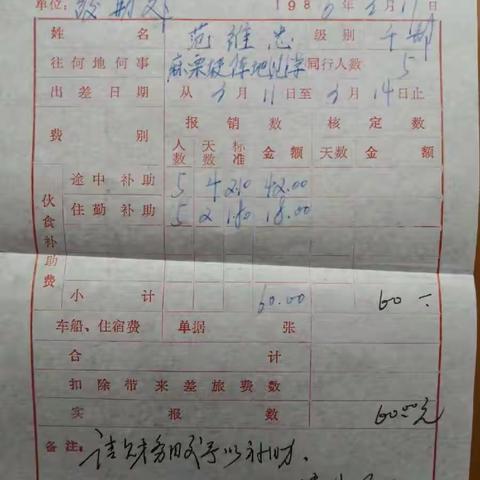 单位: 1986年3月17日
姓名 范维忠 级别 干部
往何地何事 麻栗 同行人数 5
出差日期 从3月11日至3月14日止
费别 报销数 核定数
人数 天数 标准 金额 天数 金额
伙食补助费
途中补助 5 4 2.10 42.00
住勤补助 5 2 1.80 18.00
小计 60.00 60
车船、住宿费 单据 张
合计
扣除带来差旅费数
实报数 60.00元
备注: 请财务股予以补助.